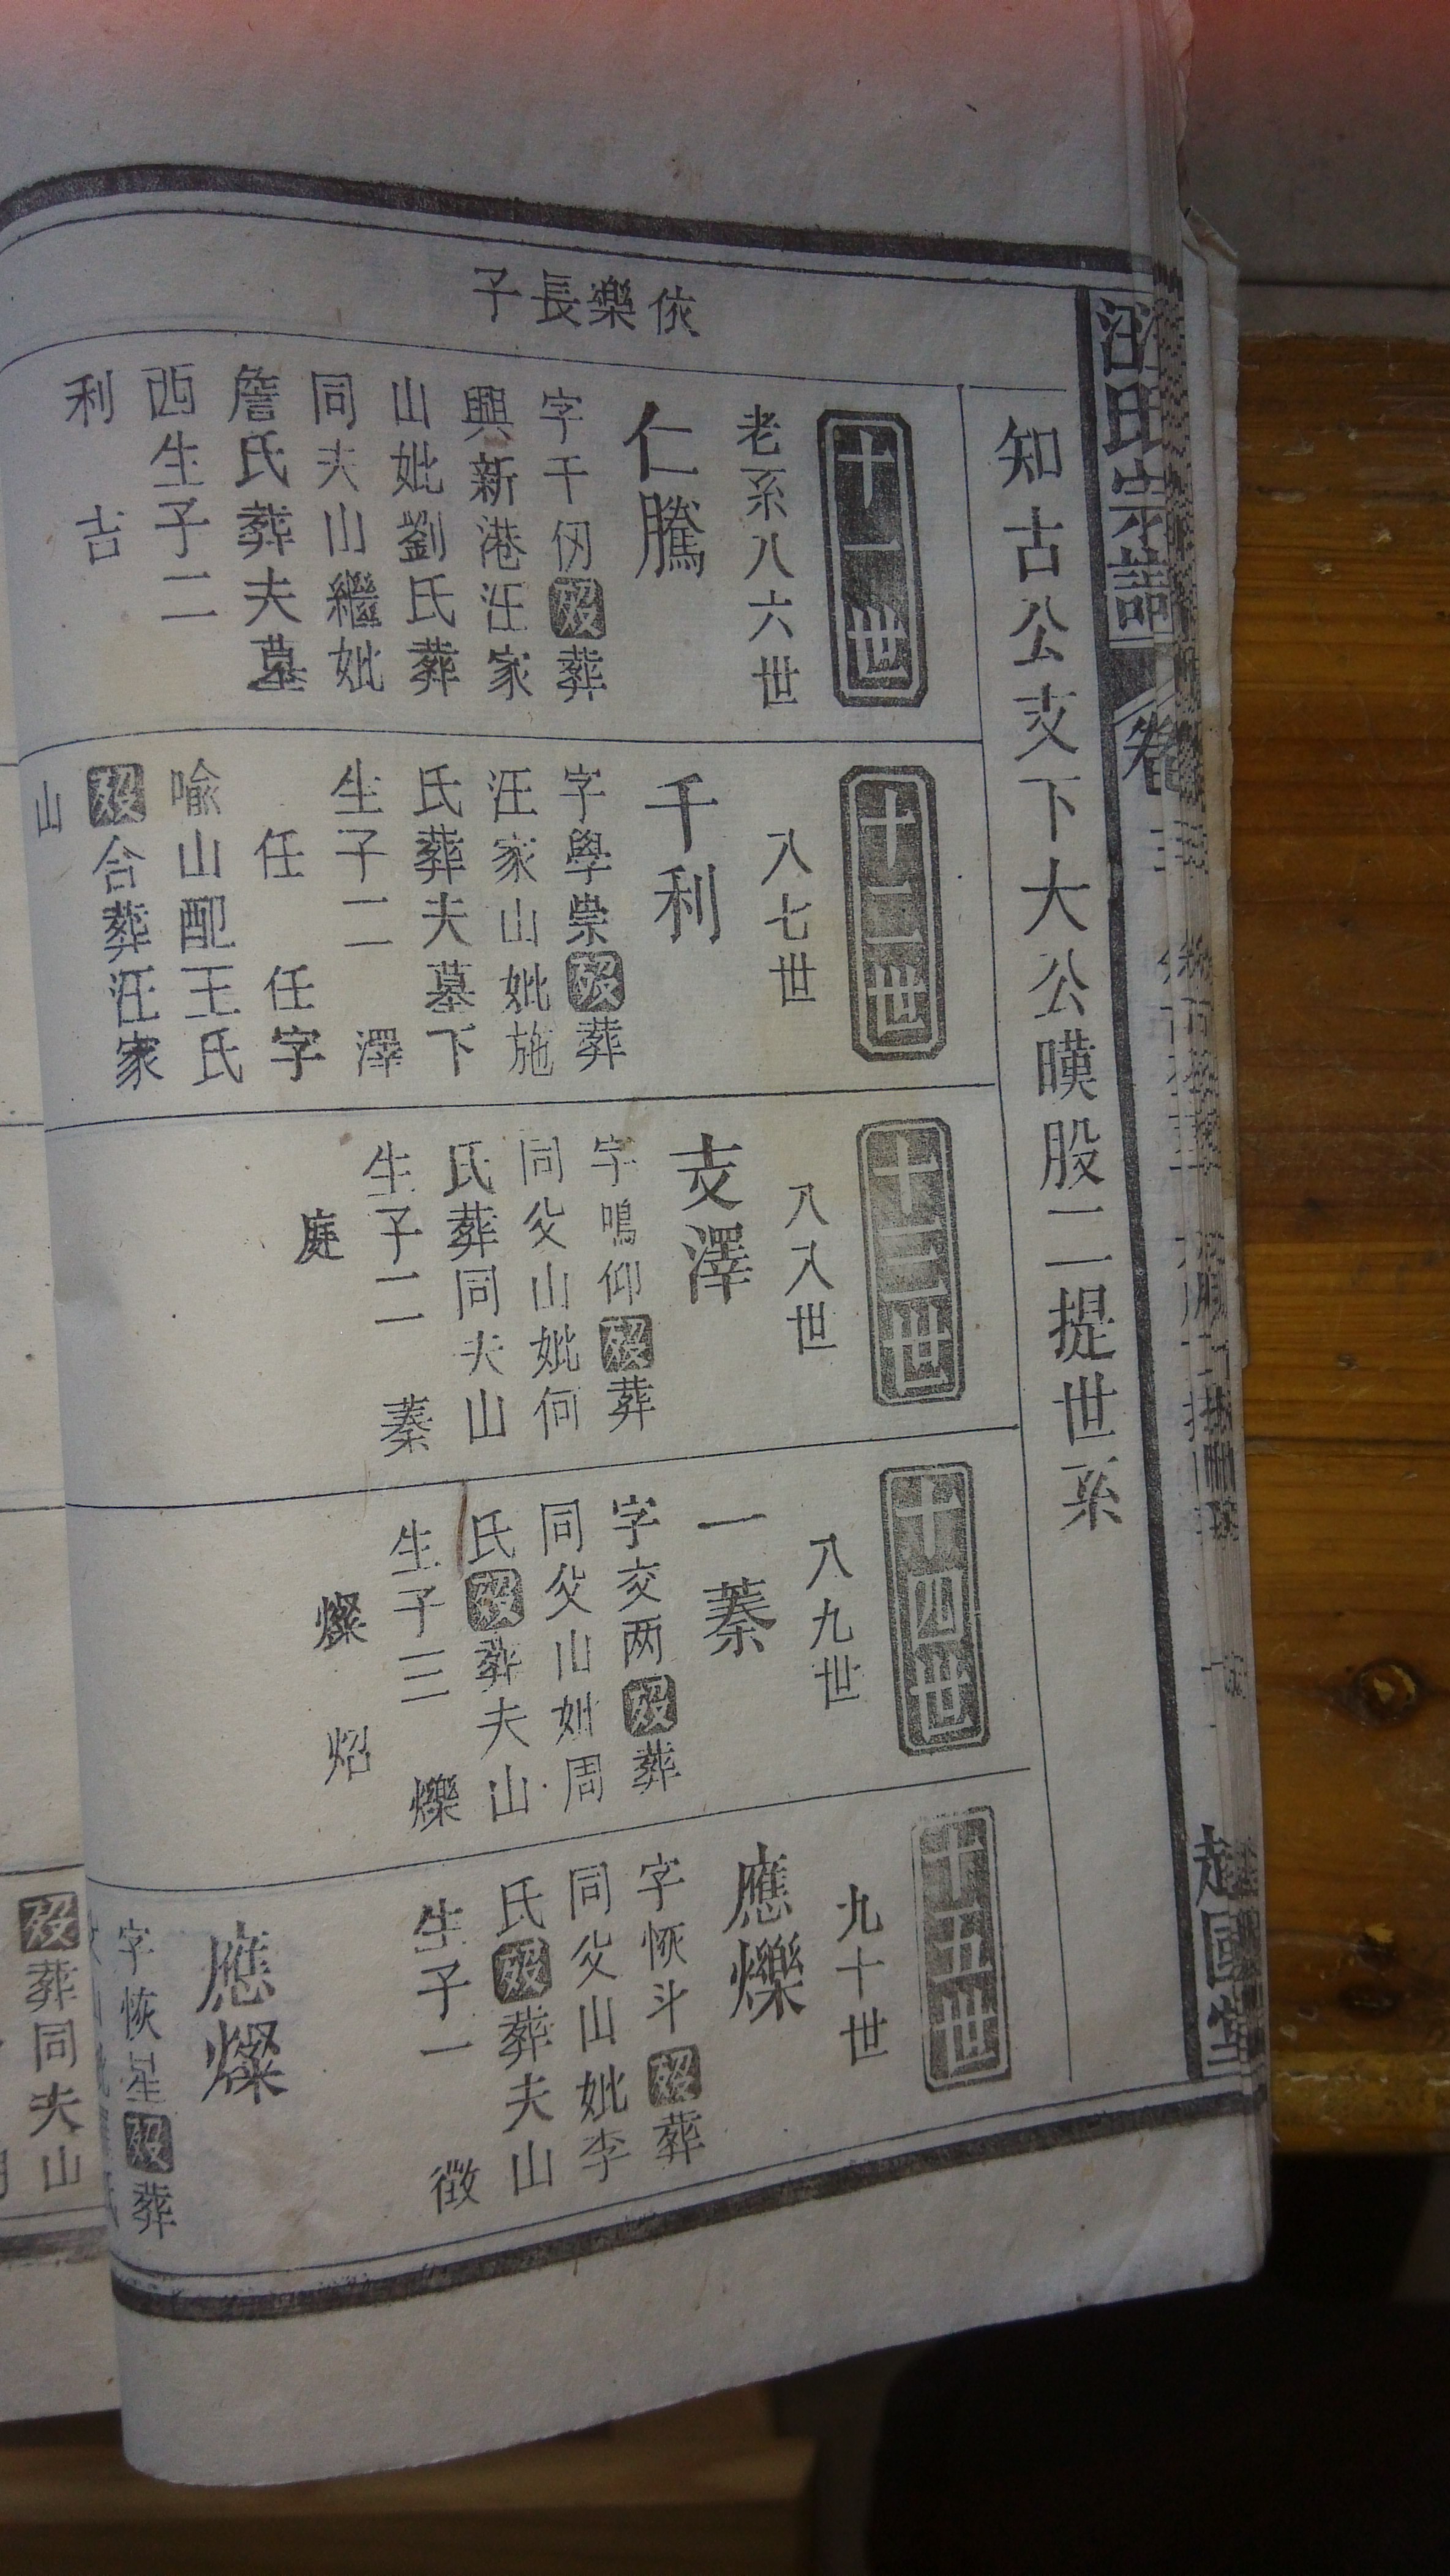 汪氏宗譜
卷
知古公支下大公暵股二提世系
依樂長子
十一世
老系八六世
仁騰
字千仞歿葬
興新港汪家
山妣劉氏葬
同夫山繼妣
詹氏葬夫墓
西生子二
利 吉
十二世
八七世
千利
字學崇歿葬
汪家山妣施
氏葬夫墓下
生子二 澤
任 任字
喻山配王氏
歿合葬汪家
山
十三世
八八世
支澤
字鳴仰歿葬
同父山妣何
氏葬同夫山
生子二 蓁
庭
十四世
八九世
一蓁
字交两歿葬
同父山妣周
氏歿葬夫山
生子三 爍
燦 炤
十五世
九十世
應爍
字恢斗歿葬
同父山妣李
氏歿葬夫山
生子一 徵
應燦
字恢星歿葬
歿葬同夫山